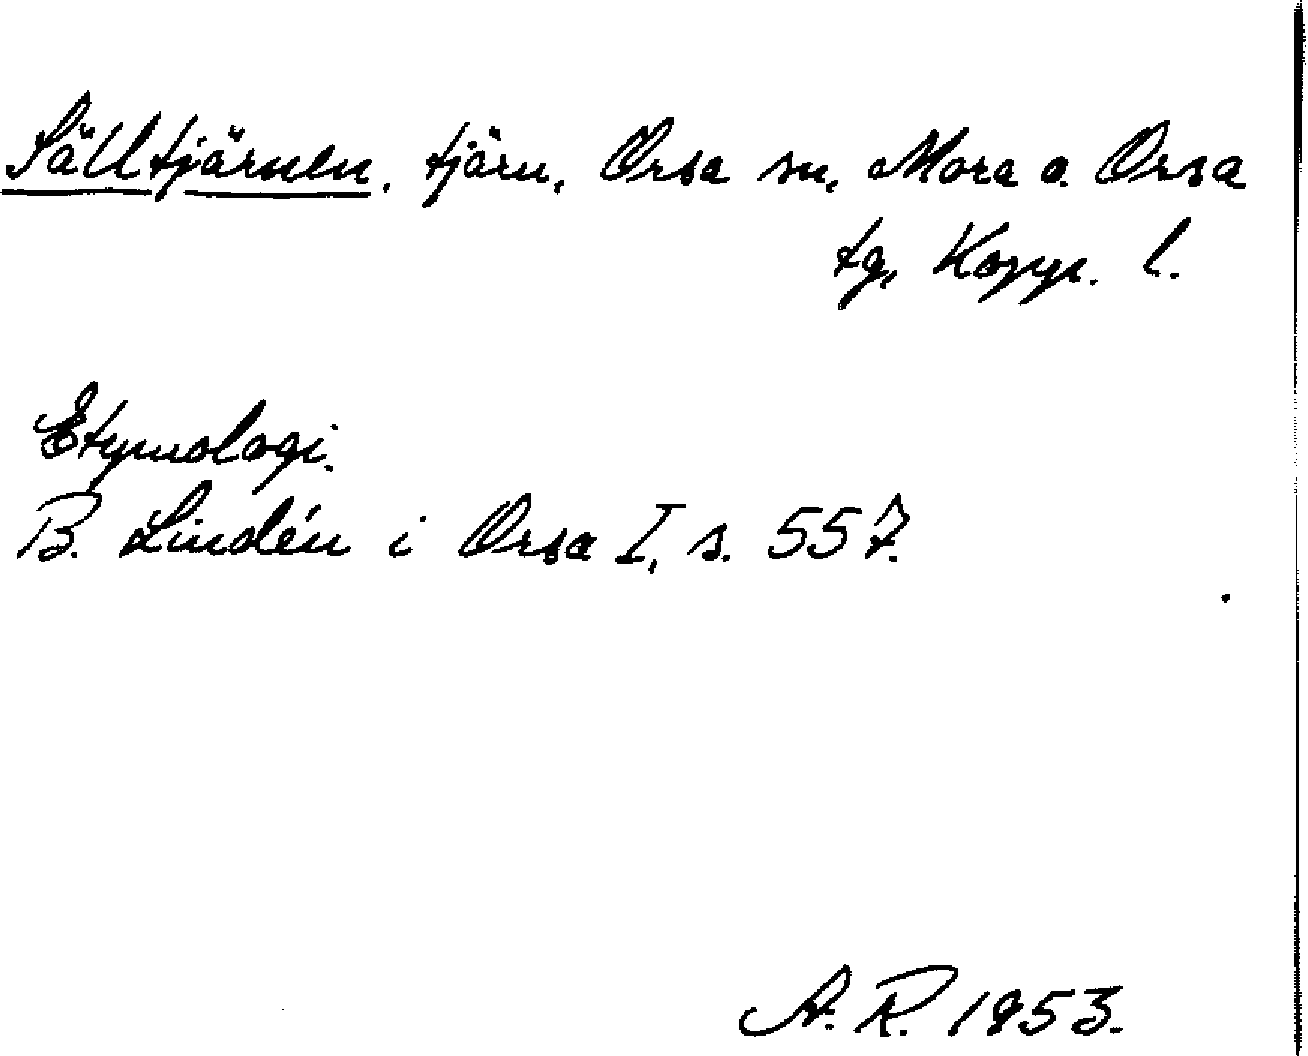 Sälltjärnen, tjärn, Orsa sn, Mora o. Orsa
tg, Kopp. l.
Etymologi.
B. Lindén i Orsa I, s. 557.
A. R. 1953.